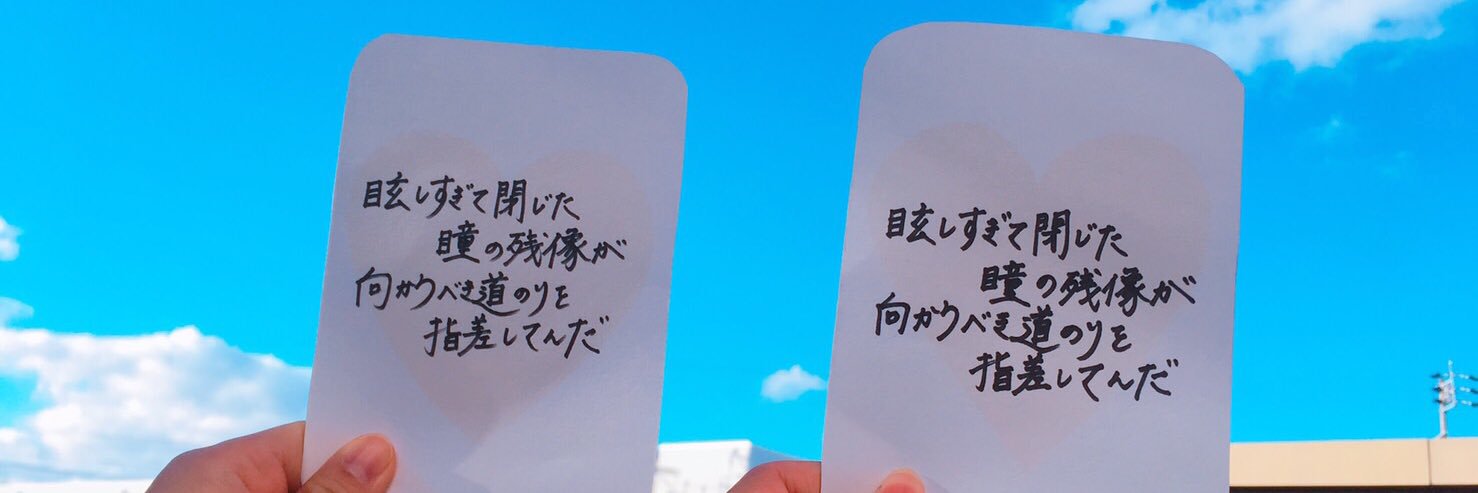 眩しすぎて閉じた
瞳の残像が
向かうべき道のりを
指差してんだ
眩しすぎて閉じた
瞳の残像が
向かうべき道のりを
指差してんだ